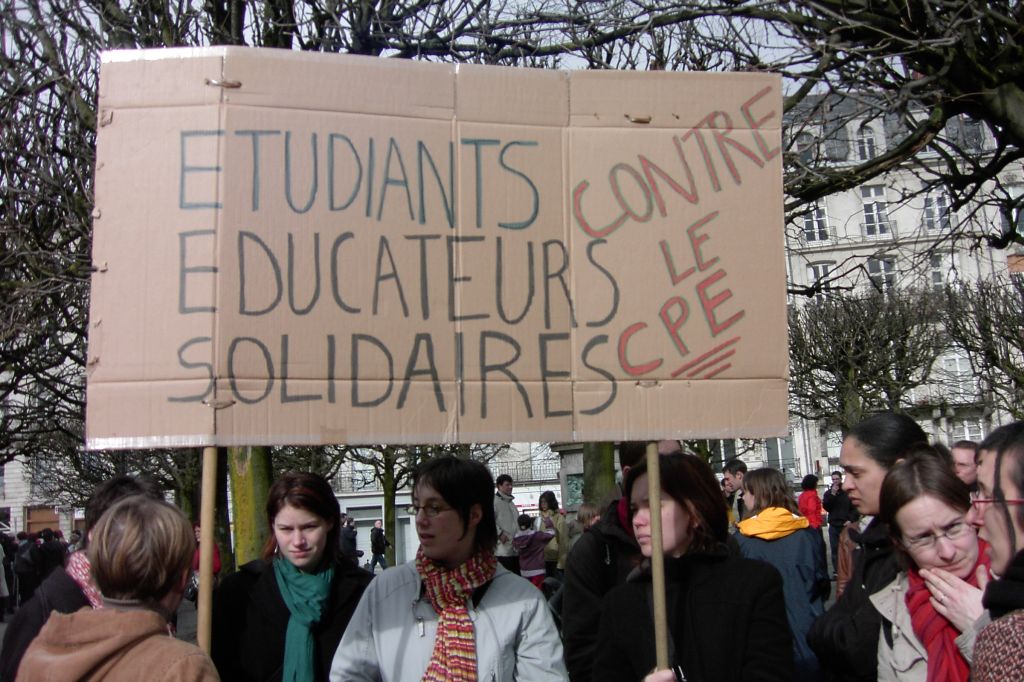 ETUDIANTS
EDUCATEURS
SOLIDAIRES
CONTRE
LE
CPE